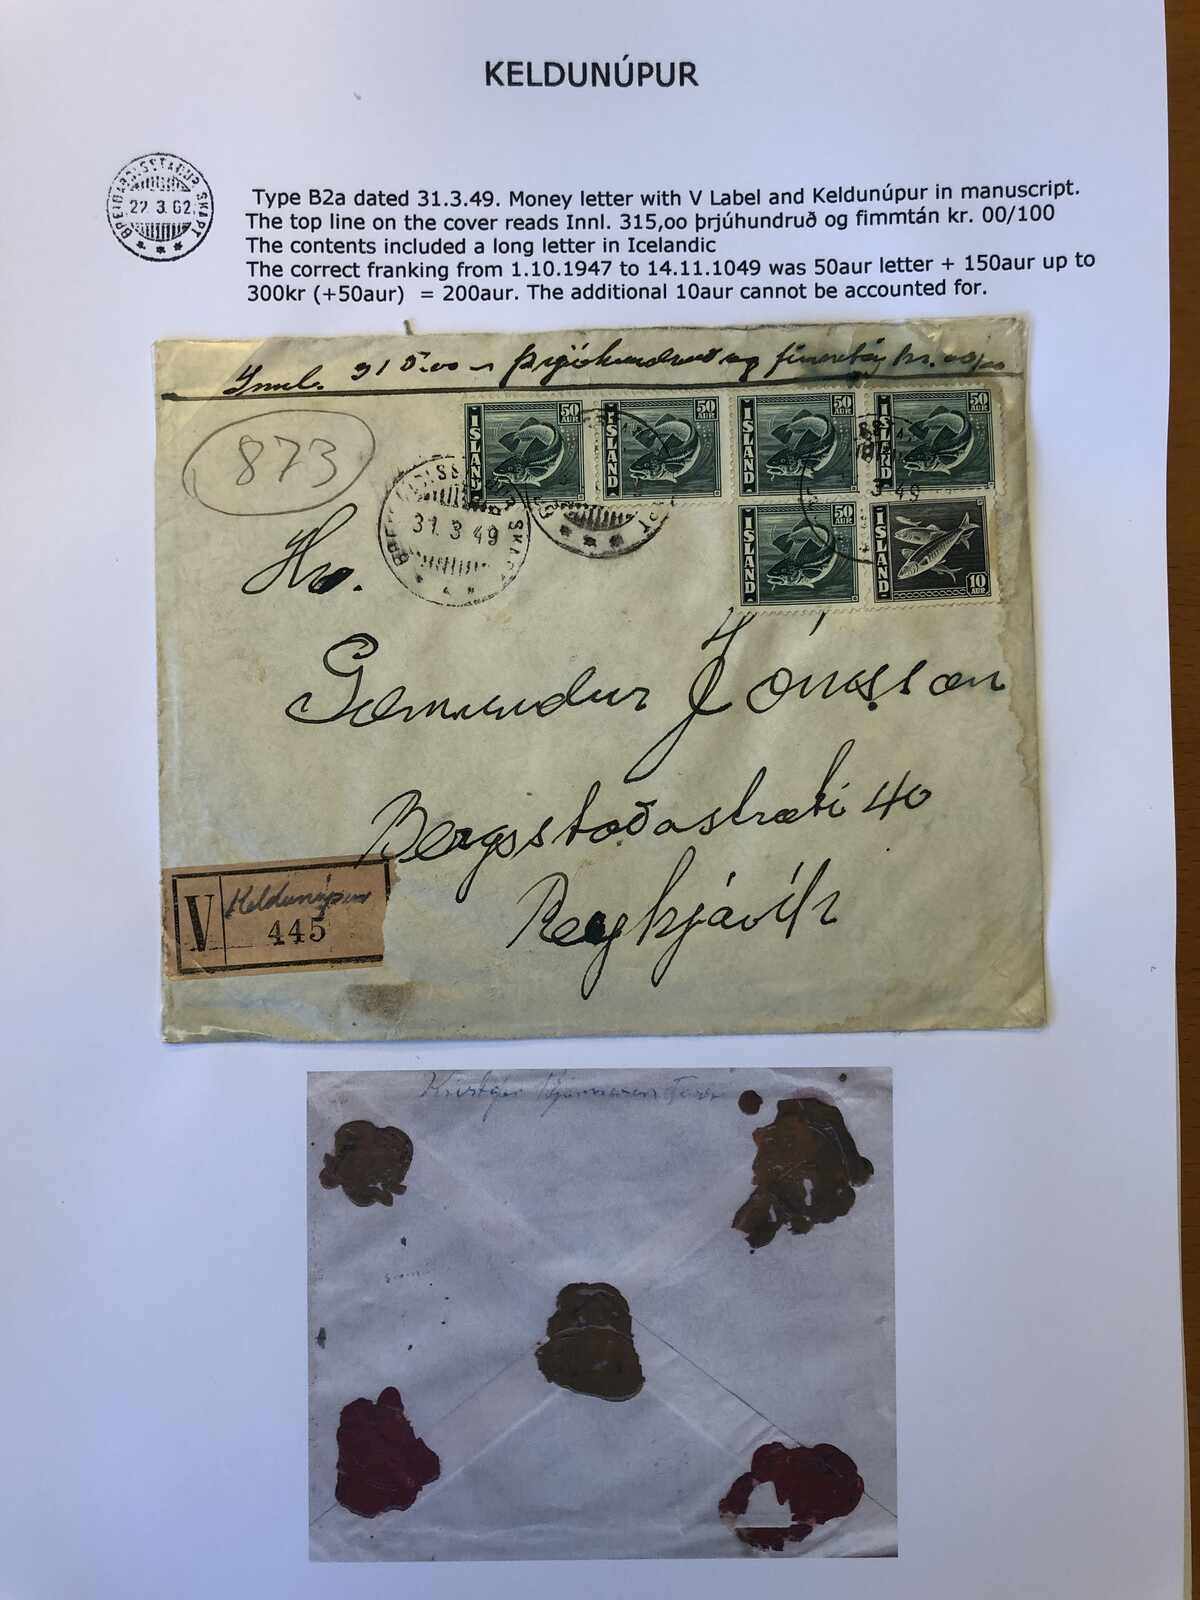 KELDUNÚPUR
BREIÐABÓLSSTAÐUR SKAFT.
22.3.62.
Type B2a dated 31.3.49. Money letter with V Label and Keldunúpur in manuscript.
The top line on the cover reads Innl. 315,oo þrjúhundruð og fimmtán kr. 00/100
The contents included a long letter in Icelandic
The correct franking from 1.10.1947 to 14.11.1049 was 50aur letter + 150aur up to
300kr (+50aur) = 200aur. The additional 10aur cannot be accounted for.
Innl. 315.00 - þrjúhundruð og fimmtán kr. 00/100
873
50 AUR ÍSLAND
50 AUR ÍSLAND
50 AUR ÍSLAND
50 AUR ÍSLAND
50 AUR ÍSLAND
10 AUR ÍSLAND
31.3.49
3 49
Hr.
Guðmundur Jónsson
Bergsstaðastræti 40
Reykjavík
V Keldunúpur
445